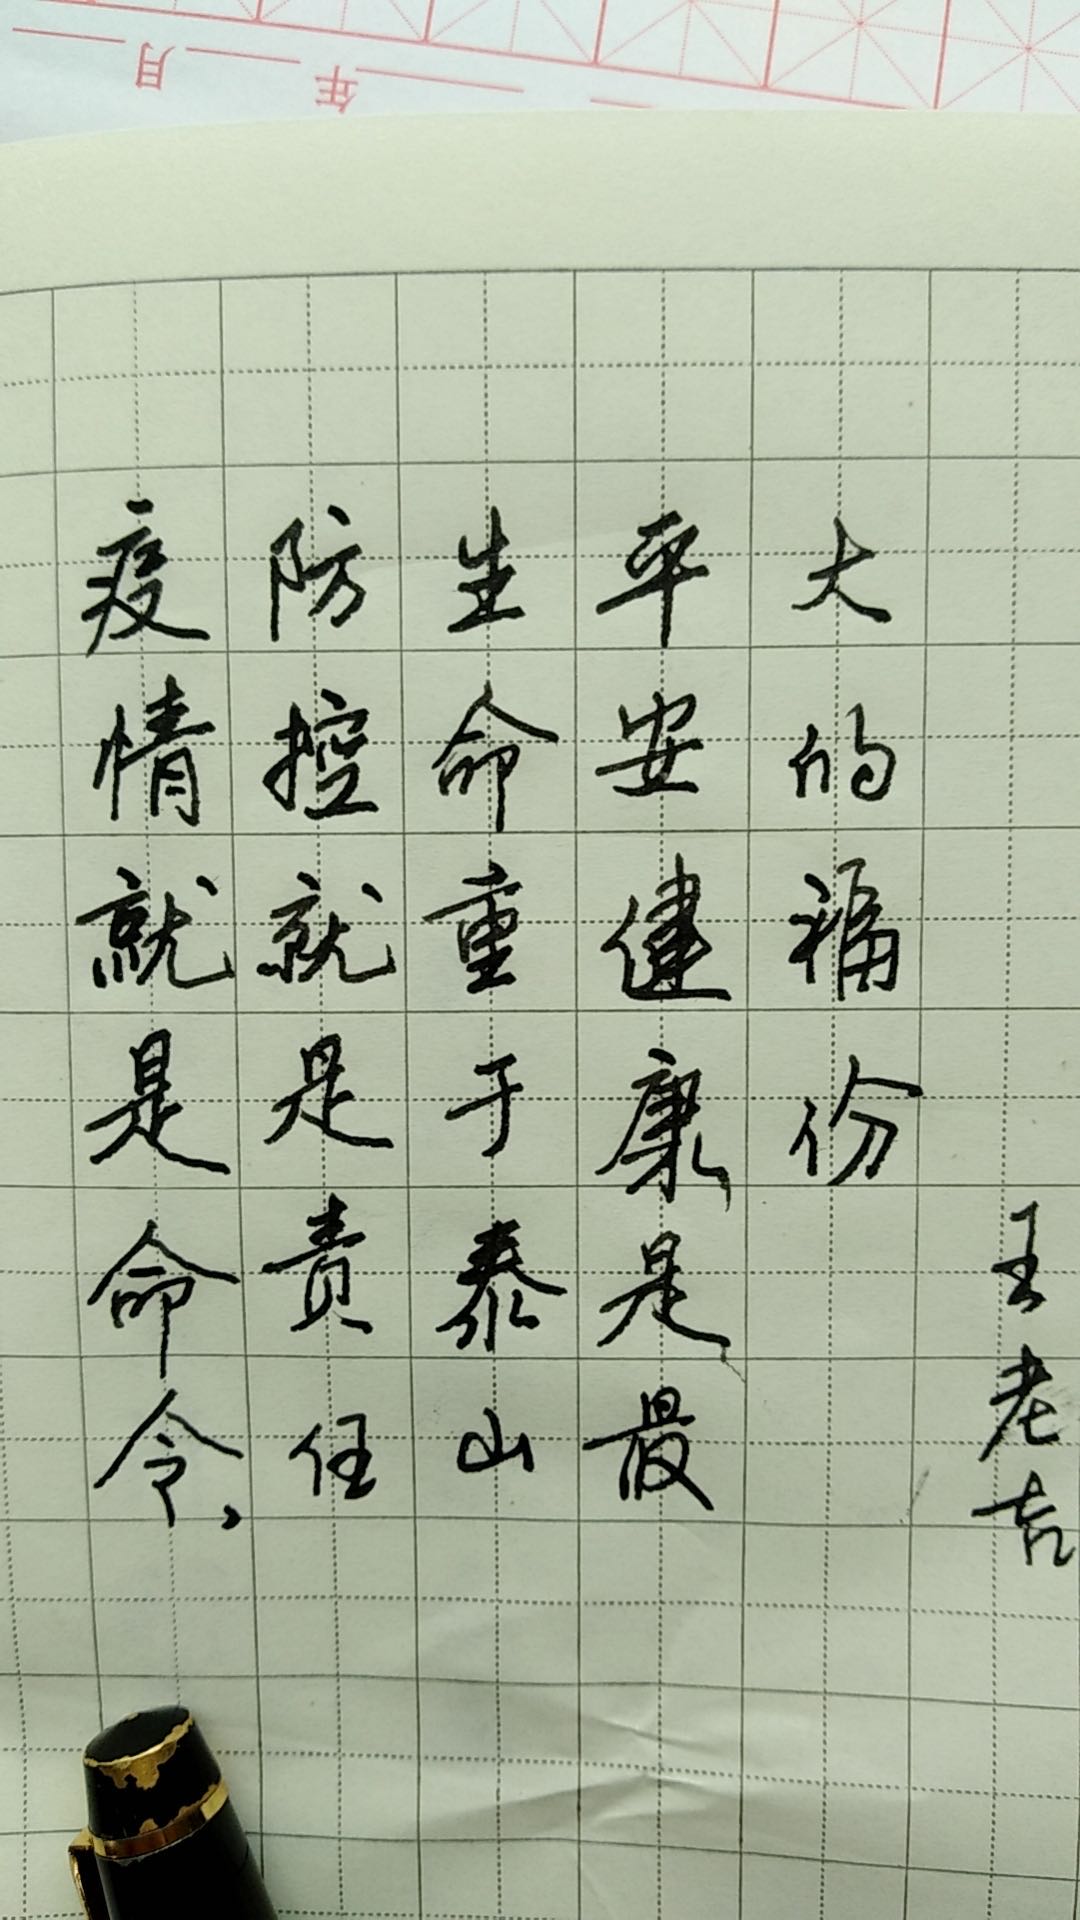 年 月
疫情就是命令、
防控就是责任
生命重于泰山
平安健康是最
大的福份
王老吉